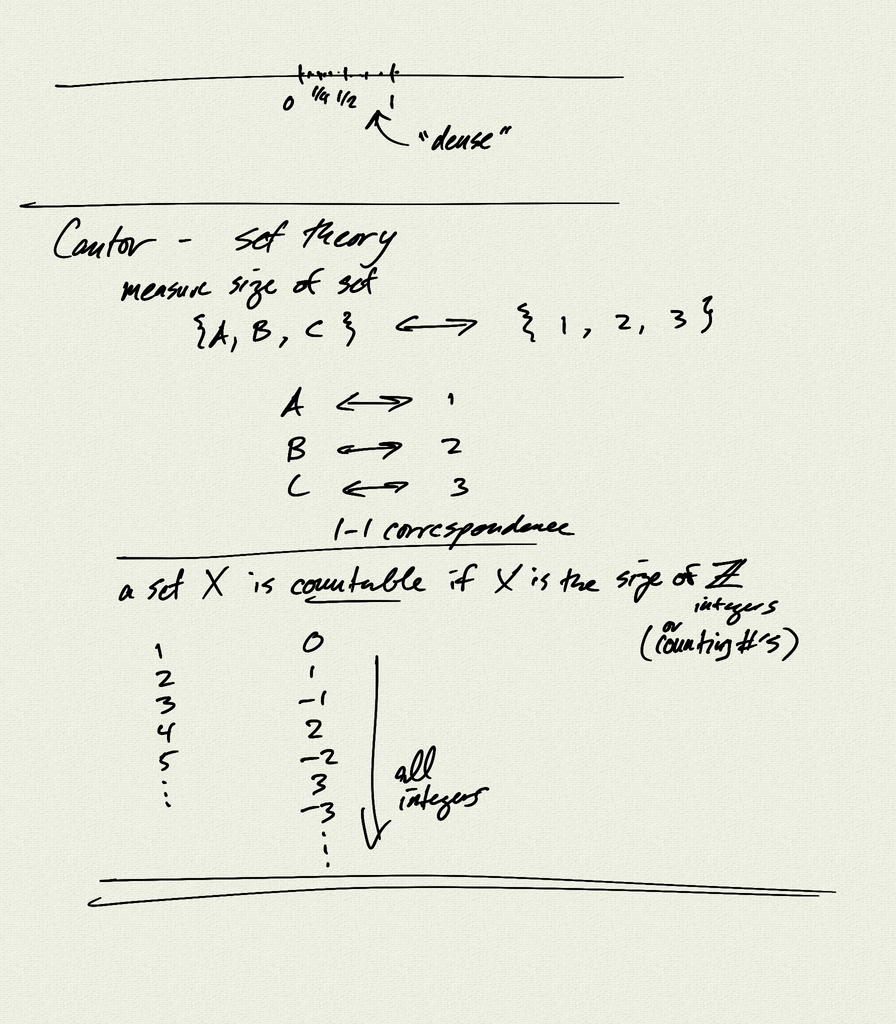 0 1/4 1/2 1
"dense"
Cantor - set theory
measure size of set
{A, B, C} ↔ {1, 2, 3}
A ↔ 1
B ↔ 2
C ↔ 3
1-1 correspondence
a set X is countable if X is the size of ℤ
integers
(or counting #'s)
1 0
2 1
3 -1
4 2
5 -2
⋮ 3
-3
⋮
all
integers